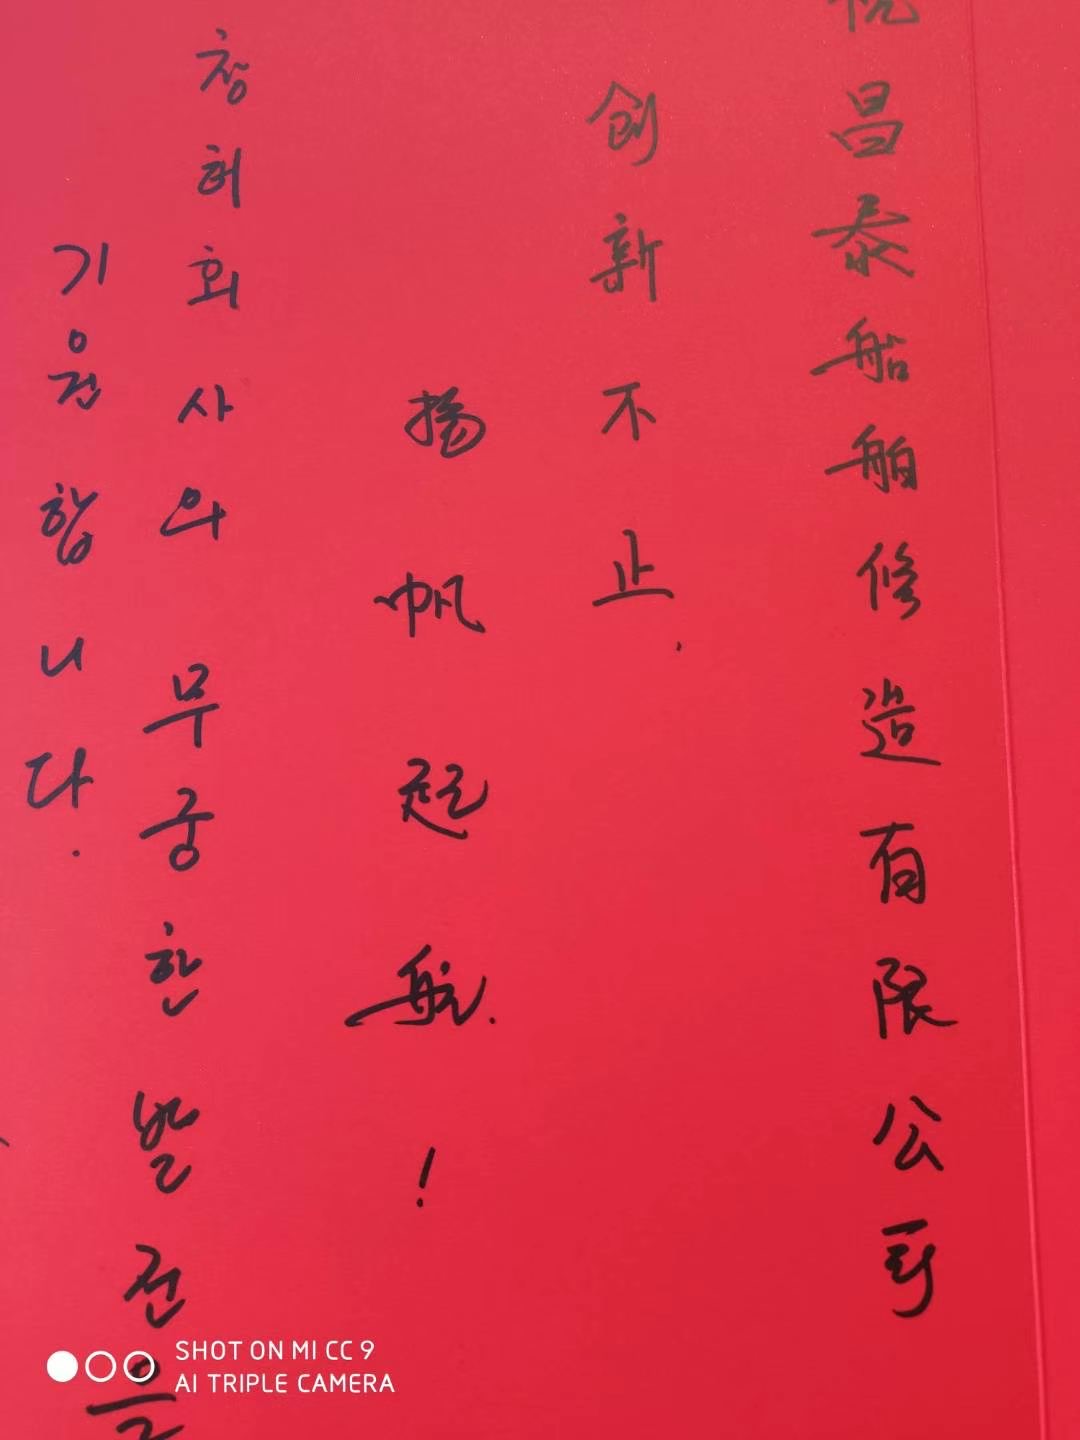 祝昌泰船舶修造有限公司
创新不止.
扬帆起航.!
창허회사의 무궁한 발전을
기원합니다.
SHOT ON MI CC 9
AI TRIPLE CAMERA